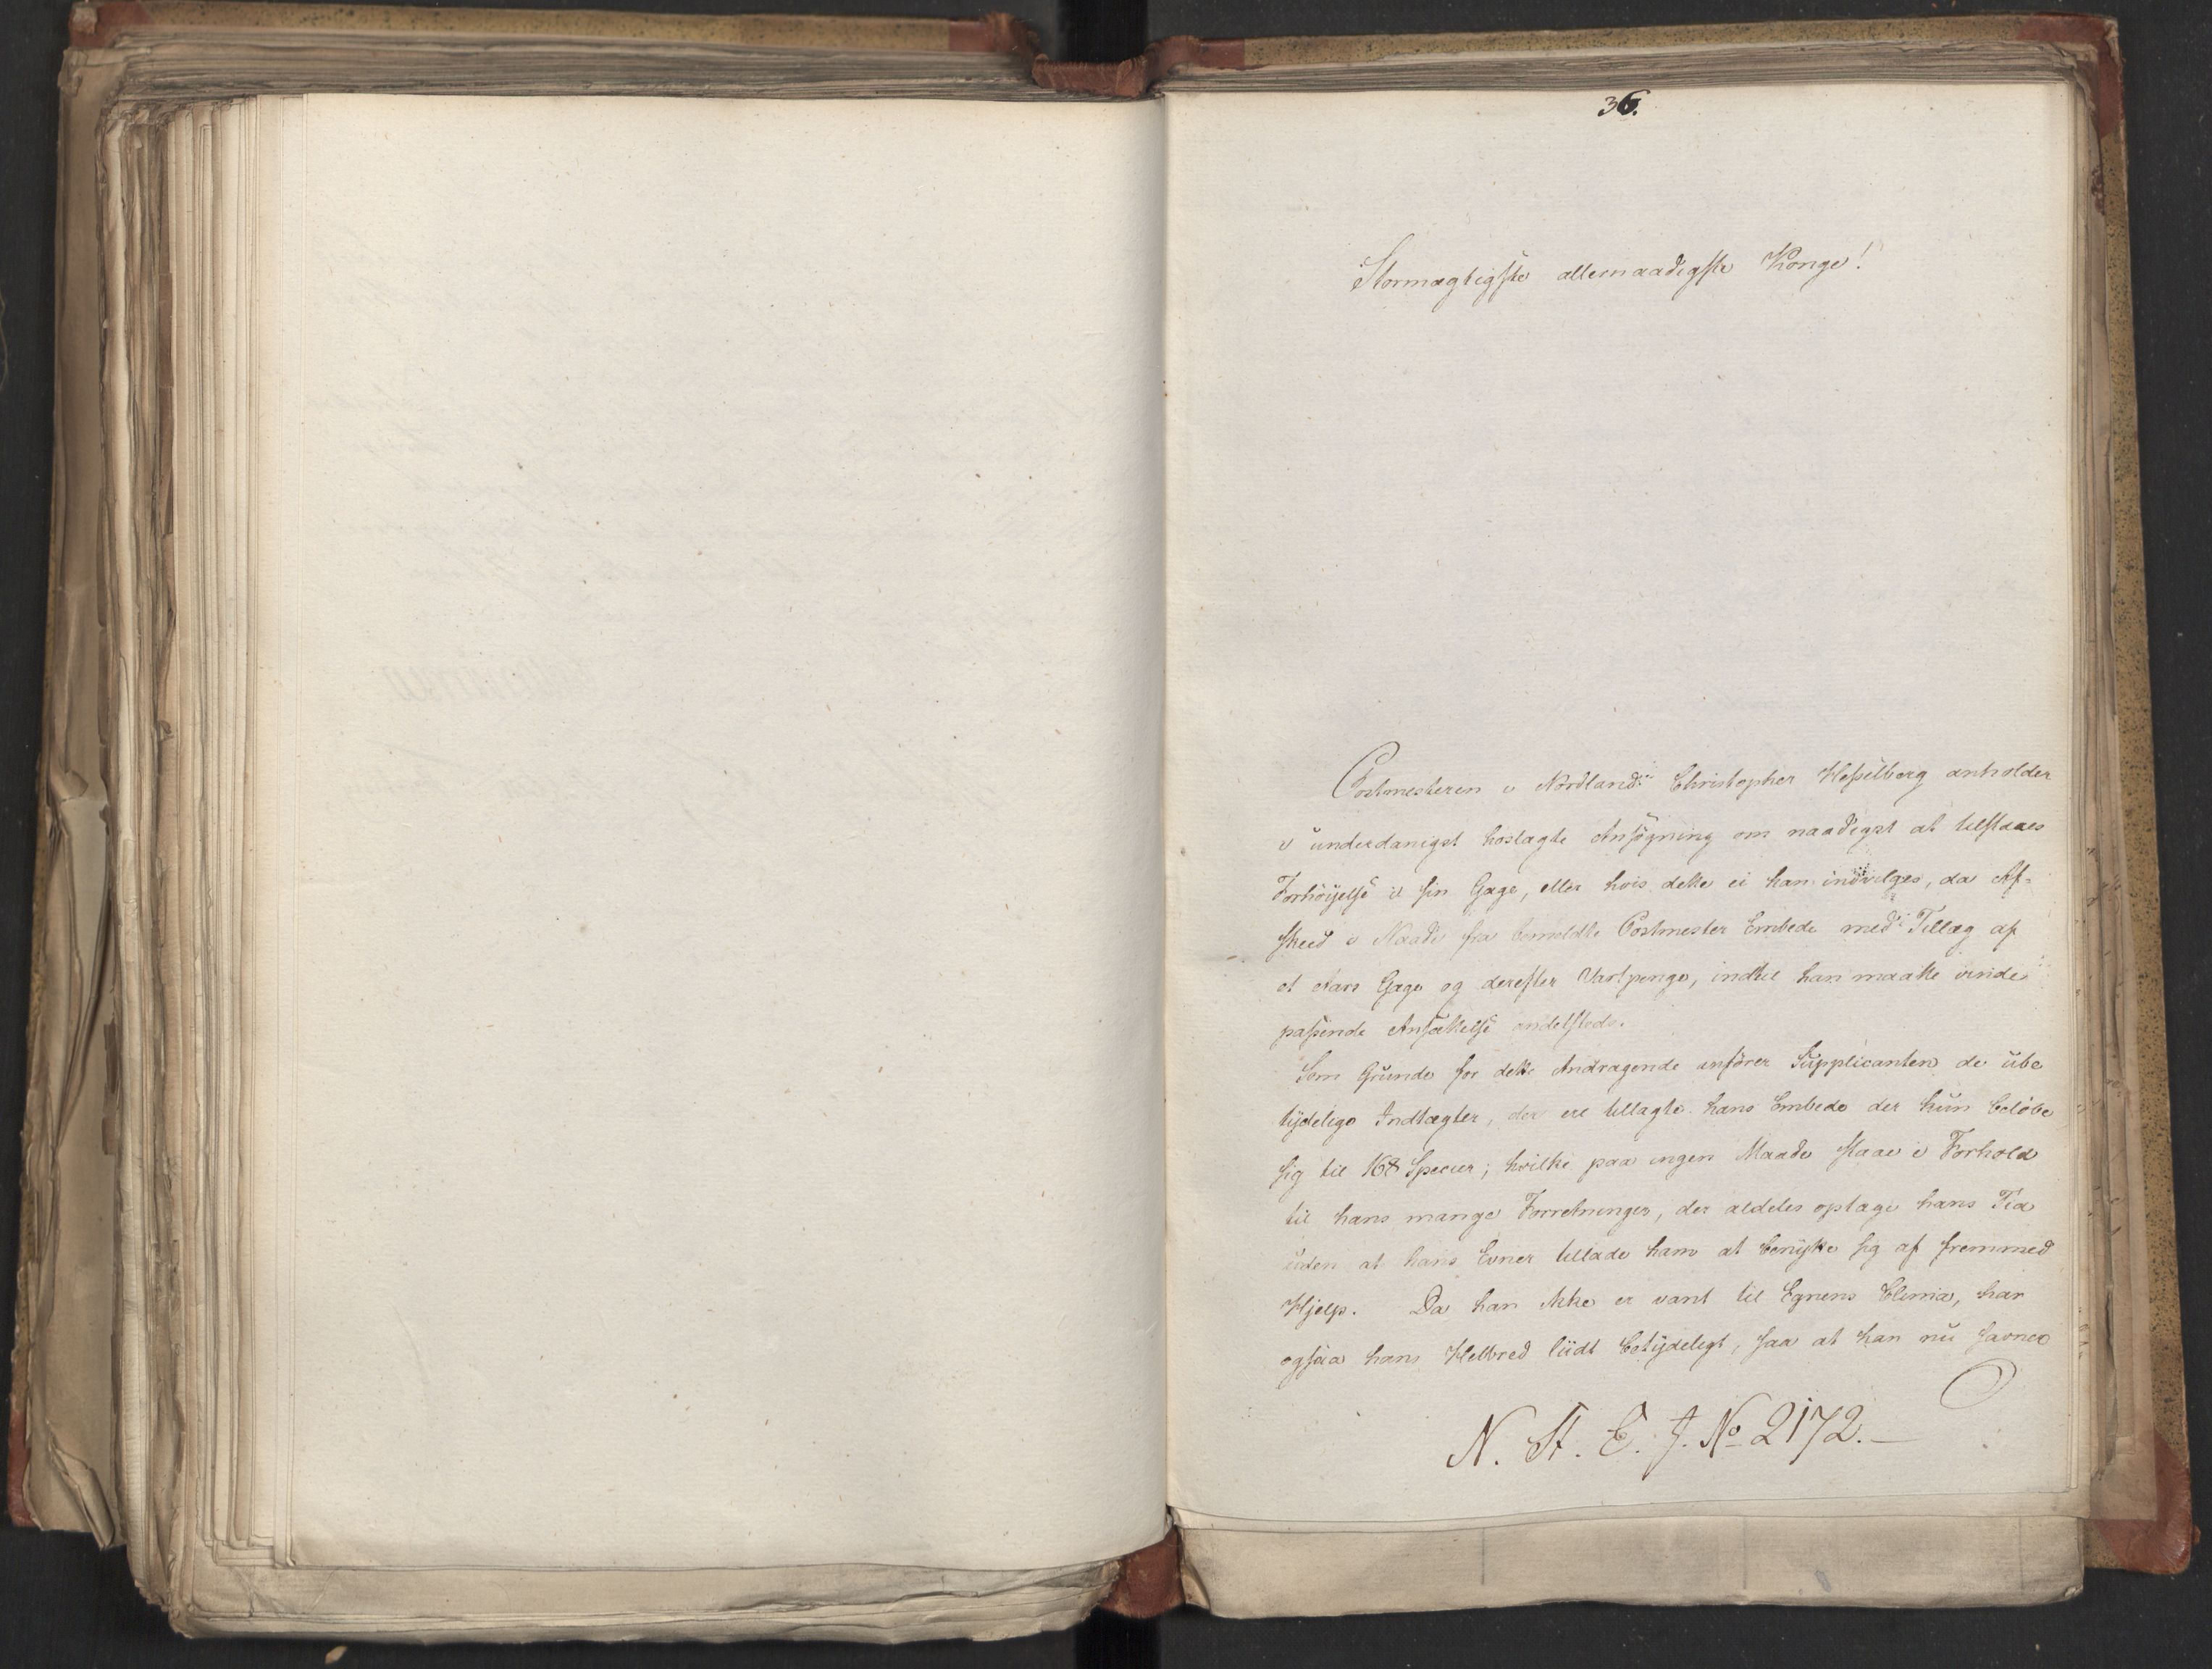 36.
Stormægtigste allernaadigste Konge!
Postmesteren i Nordland Christopher Hesselberg anholder
i underdanigst hoslagte Ansögning om naadigst at tilstaaes
Forhöyelse i sin Gage, eller hvis dette ei kan indvilges, da Af-
skeed i Naade fra bemeldte Postmester Embede med Tillæg af
et Aars Gage og derefter Vartpenge, indtil han maatte vinde
passende Ansættelse andetsteds.
Som Grunde for dette Andragende anförer Supplicanten de ube
tydelige Indtægter, der ere tillagte hans Embede der kun belöbe
sig til 168 Species; hvilke paa ingen Maade staae i Forhold
til hans mange Forretninger, der aldeles optage hans Tid
uden at hans Evner tillade ham at benytte sig af fremmed
Hjelp. Da han ikke er vant til Egnens Clima, har
ogsaa hans Helbred liidt betydeligt, saa at han nu savner
N. St. C. J. No 2172.